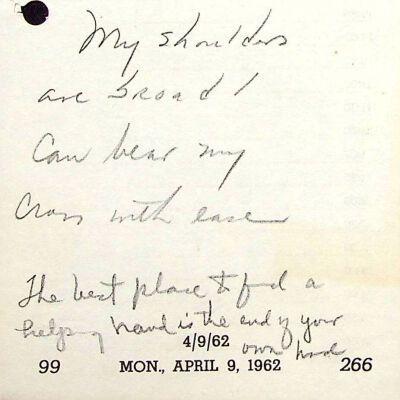 My shoulders
are broad I
Can bear my
Cross with ease
The best place to find a
helping hand is the end of your
own hand
4/9/62
99 MON., APRIL 9, 1962 266